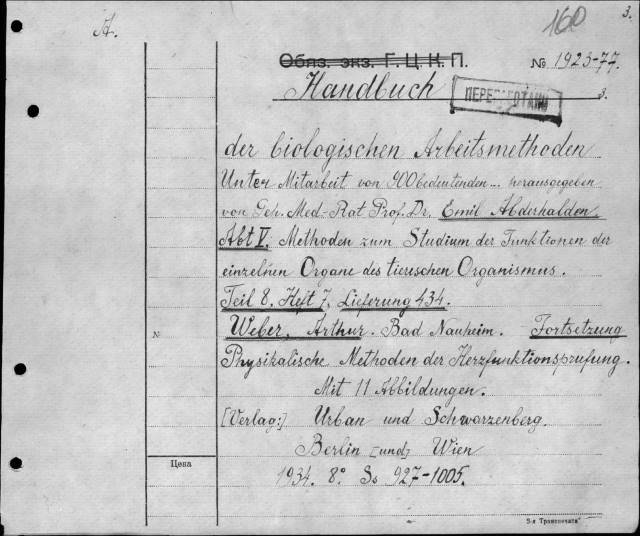 160
3.
A.
Обяз. экз. Г.Ц.К.П.
№ 1923-77.
Handbuch
ПЕРЕРАБОТАНО
3.
der biologischen Arbeitsmethoden
Unter Mitarbeit von 900 bedeutenden... herausgegeben
von Geh. Med-Rat Prof. Dr. Emil Abderhalden.
Abt V. Methoden zum Studium der Funktionen der
einzelnen Organe des tierischen Organismus.
Teil 8. Heft 7, Lieferung 434.
Weber, Arthur. Bad Nauheim. Fortsetzung
№
Physikalische Methoden der Herzfunktionsprüfung.
Mit 11 Abbildungen.
[Verlag:] Urban und Schwarzenberg.
Berlin [und] Wien
Цена
1934. 8° Ss 927-1005.
5-я Транспечать"